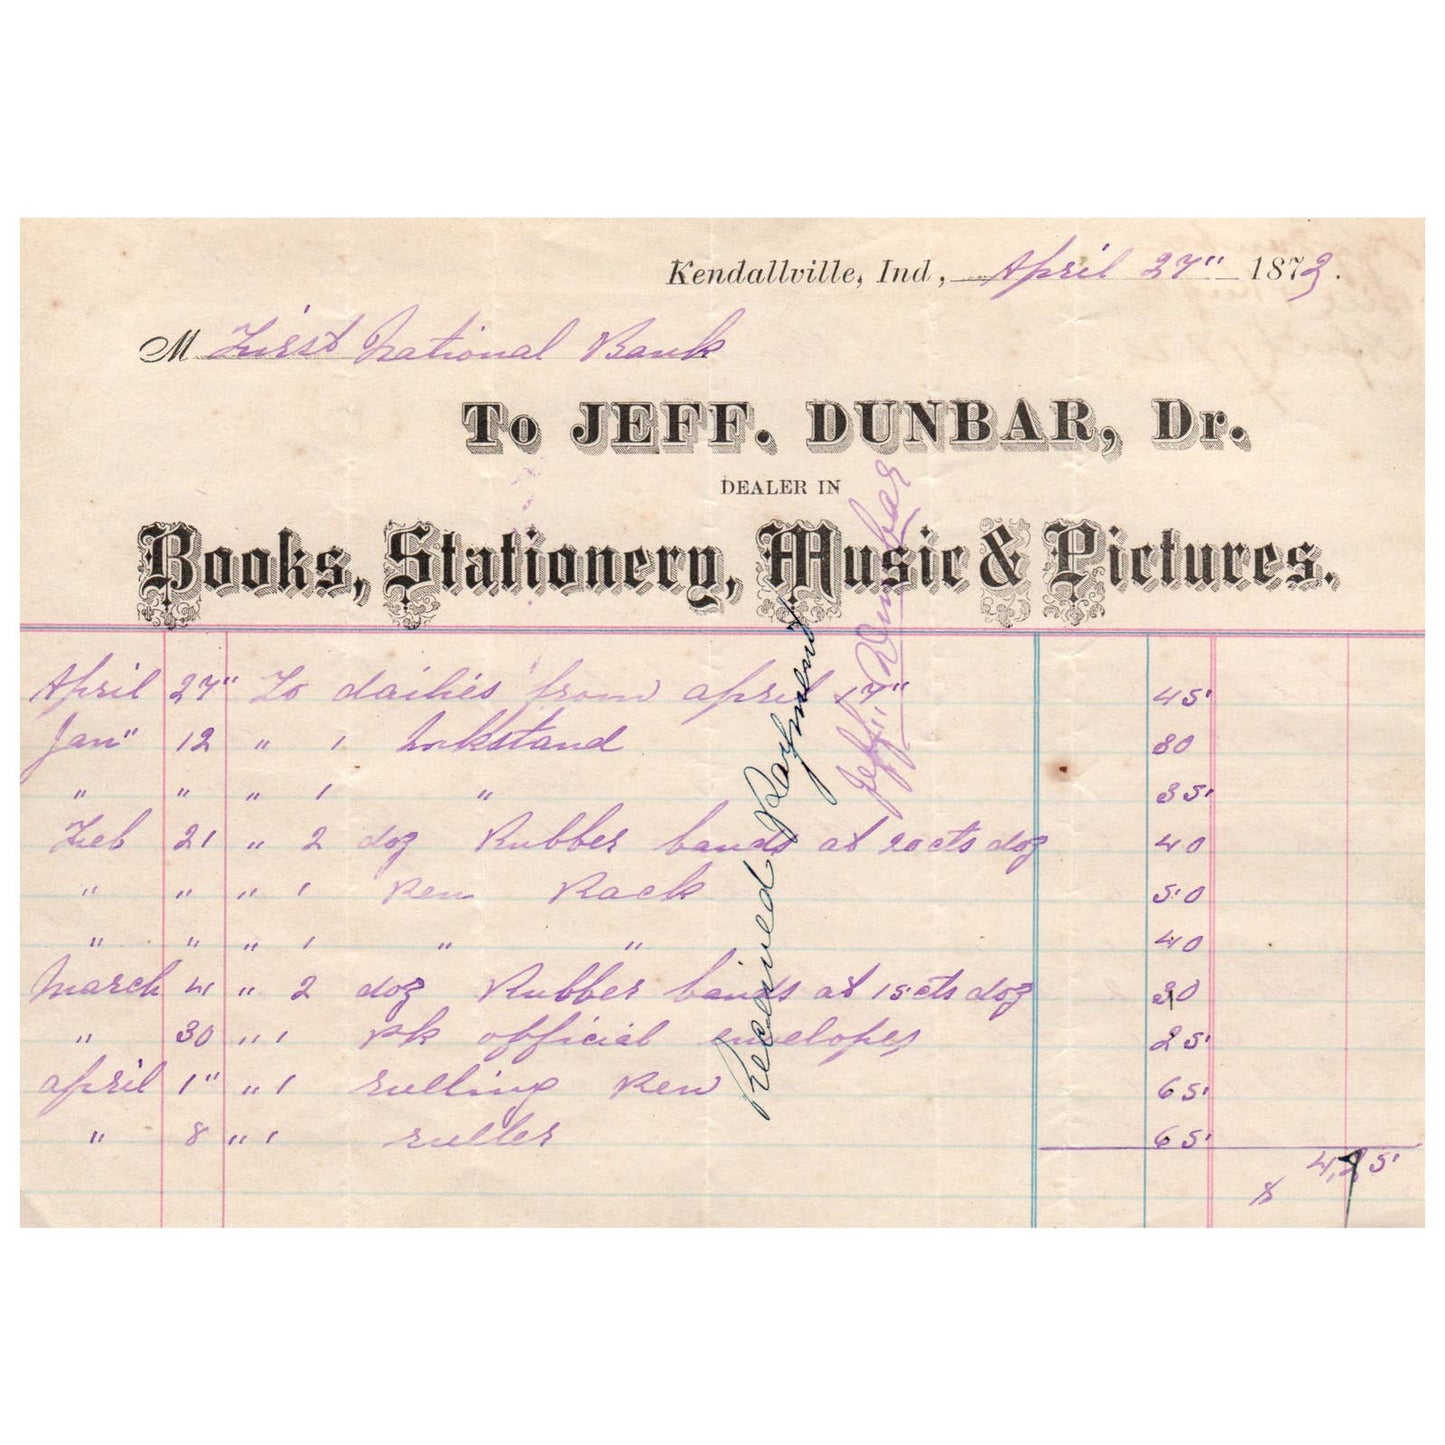 Kendallville, Ind, April 27" 1873.
M First National Bank
To JEFF. DUNBAR, Dr.
DEALER IN
Books, Stationery, Music & Pictures.
April 27" To dailies from april 17" 45
Jan" 12 " 1 Inkstand 80
" " " 1 " 35
Feb 21 " 2 doz Rubber bands at 20cts doz 40
" " " 1 Pen Rack 50
" " " 1 " " 40
March 4 " 2 doz Rubber bands at 15cts doz 30
" 30 " 1 pk official envelopes 25
april 1" " 1 rulling Pen 65
" 8 " 1 ruller 65
$ 4,75
Received Payment
Jeff. Dunbar